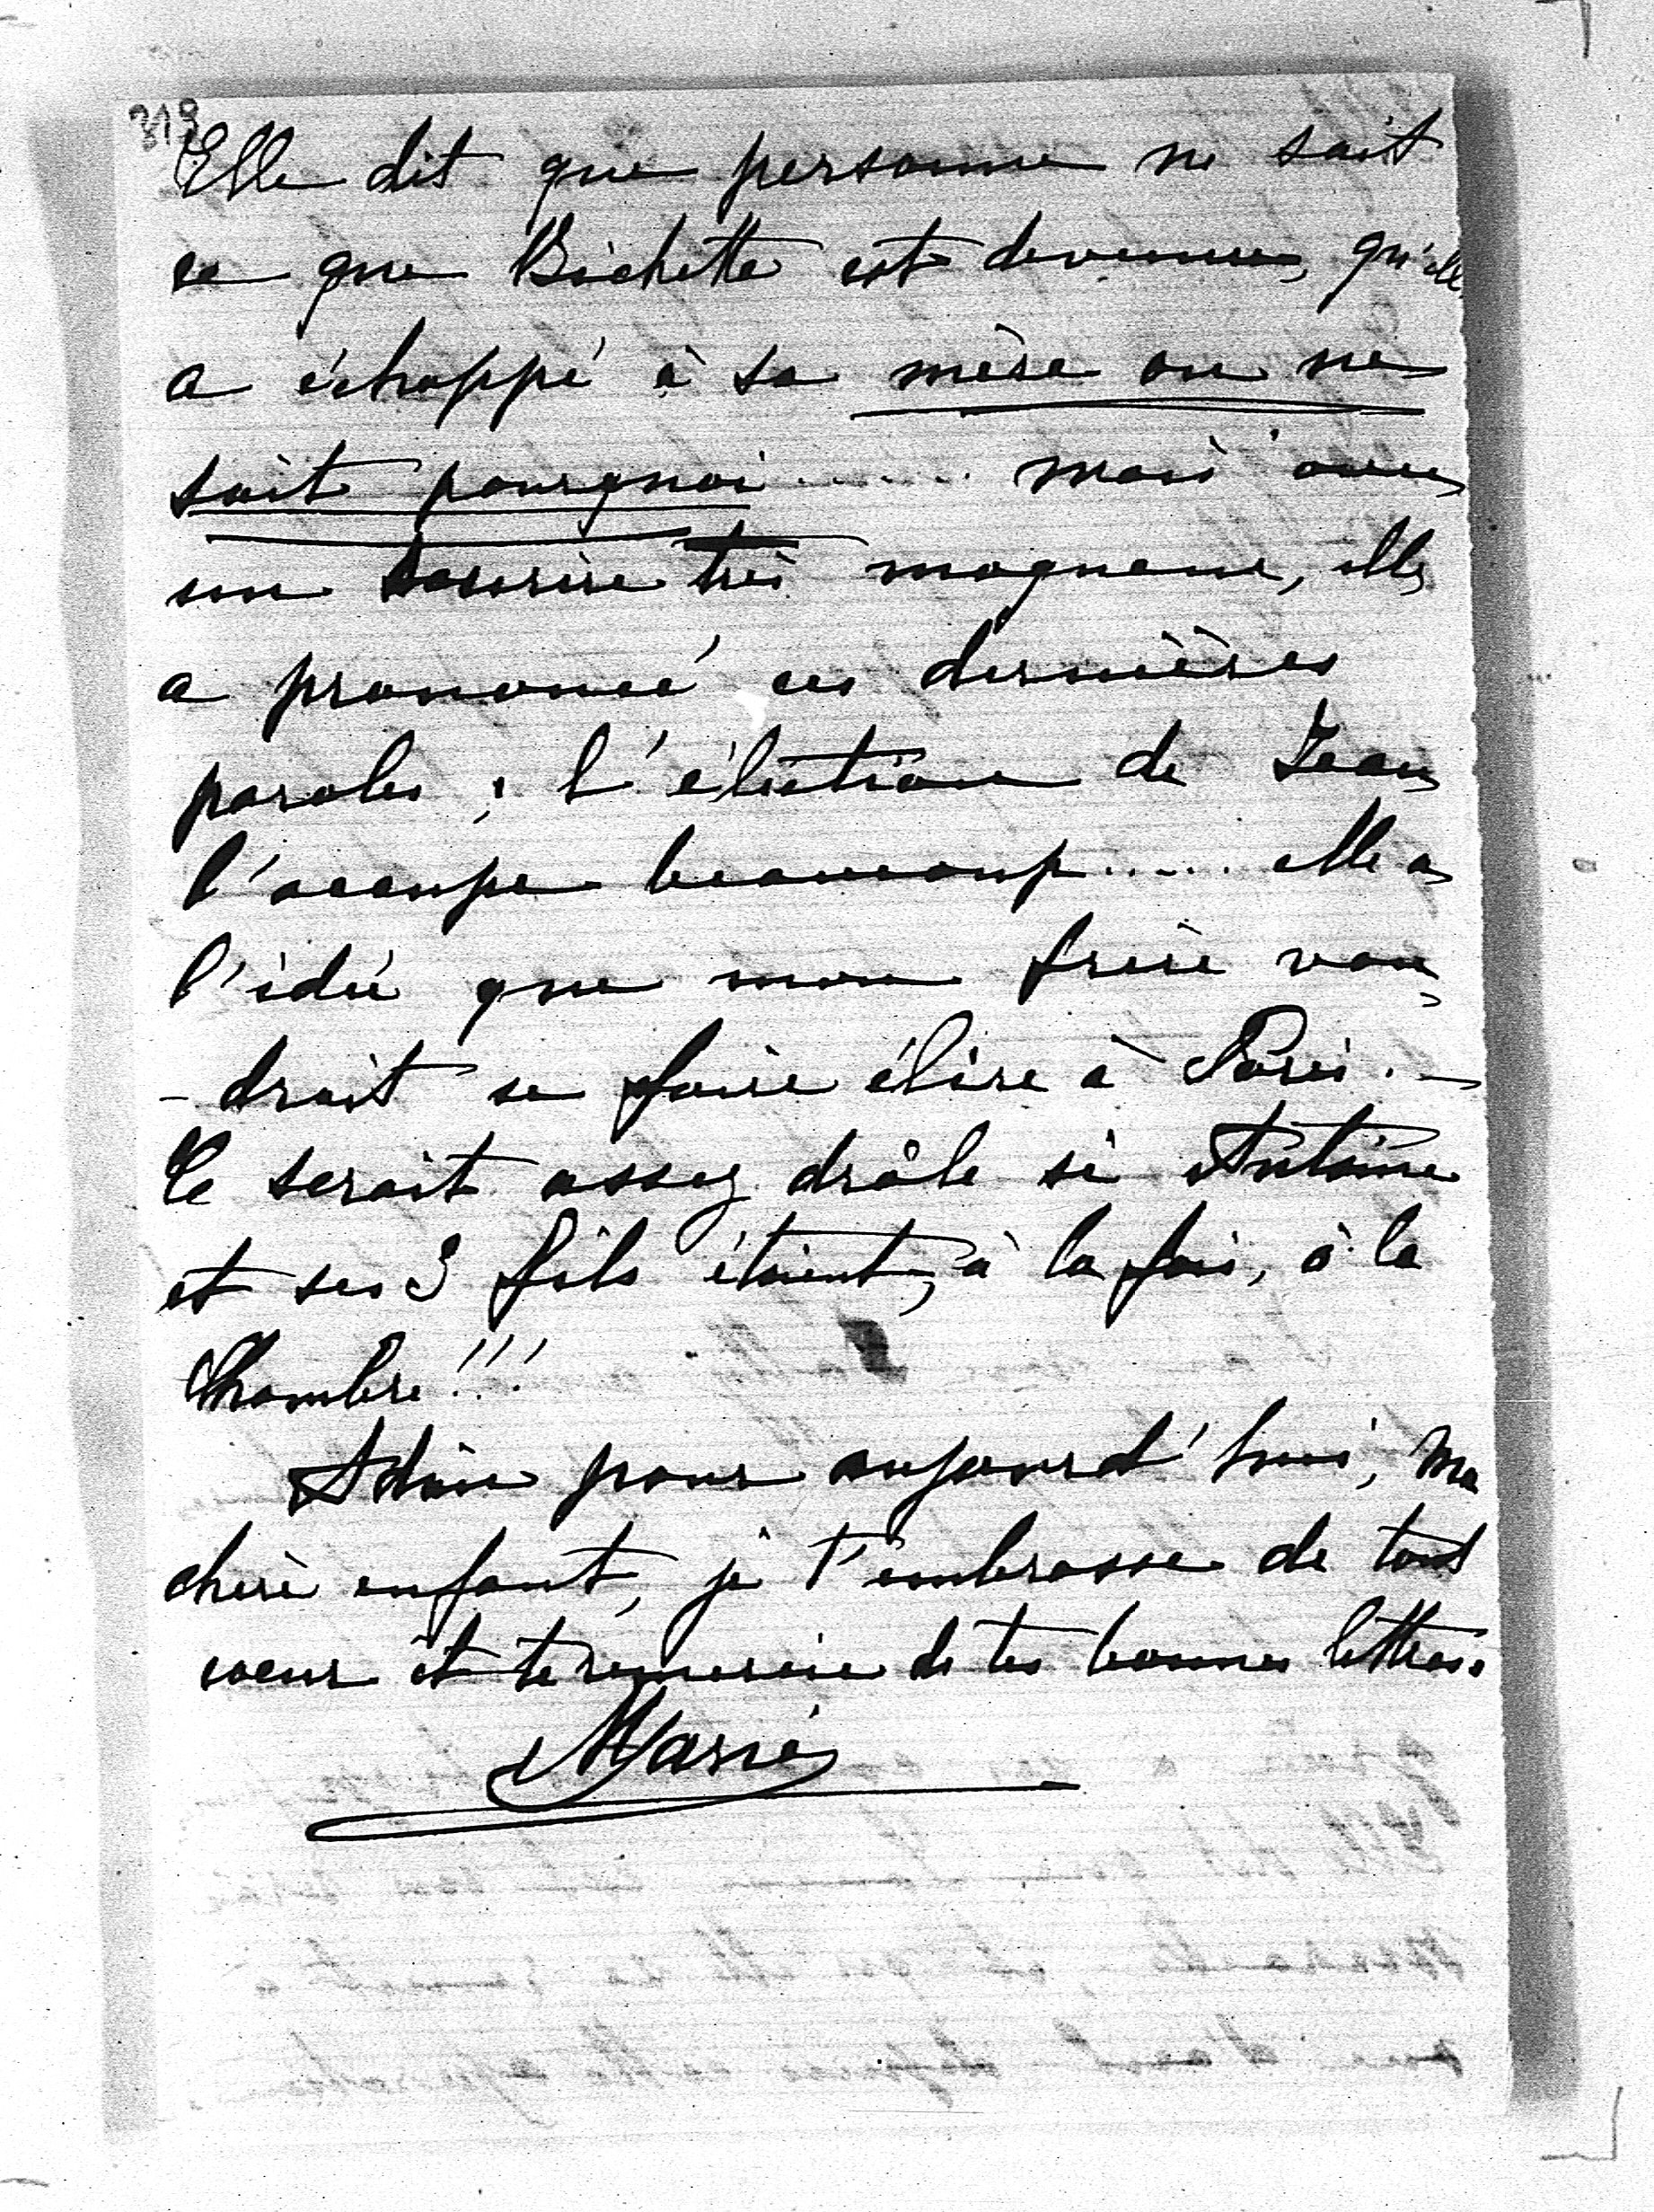 318
Elle dit que personne ne sait
ce que Bichette est devenue, qu'elle
a échappé à sa mère on ne
sait pourquoi...... mais avec
un sourire très moqueur, elle
a prononcé ces dernières
paroles ; l'élection de Jean
l'occupe beaucoup..... elle a
l'idée que mon frère vou
-drait se faire élire à Paris. -
Ce serait assez drôle si Antoine
et ses 3 fils étaient, à la fois, à la
Chambre !!!
Adieu pour aujourd'hui, ma
chère enfant, je t'embrasse de tout
coeur et te remercie de tes bonnes lettres.
Marie